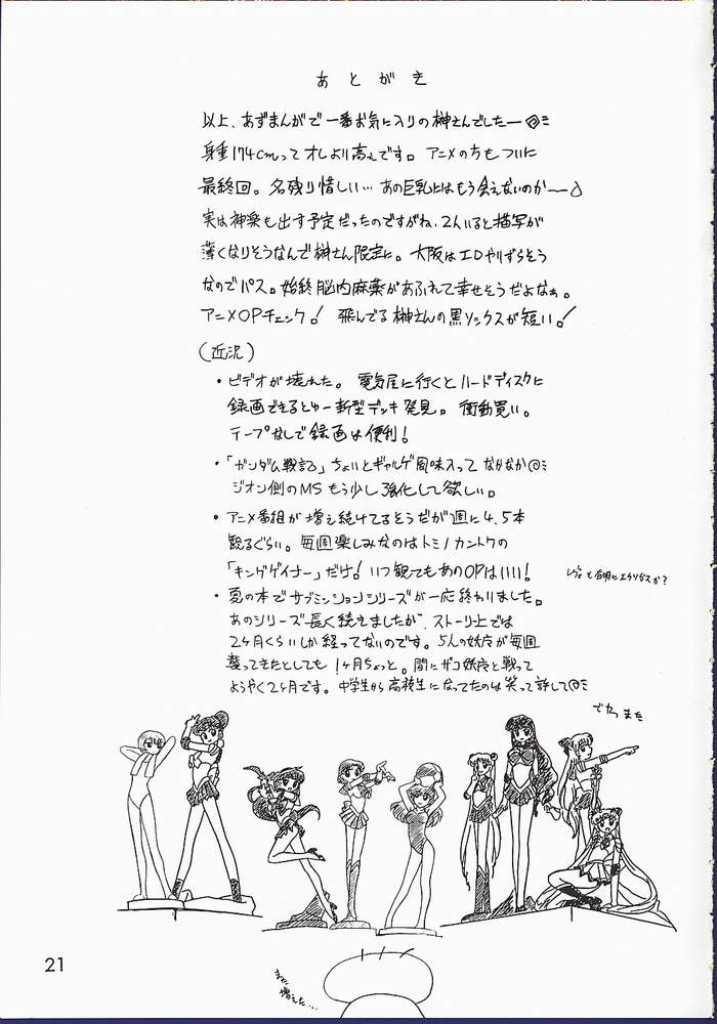 あとがき
以上、あずまんがで一番お気に入りの榊さんでしたー@ミ
身重174cmってオレより高いです。アニメの方もついに
最終回。名残り惜しい…あの巨乳とはもう会えないのか〜
実は神楽も出す予定だったのですがね、2人いると描写が
薄くなりそうなんで榊さん限定に。大阪はエロやりずらそう
なのでパス。始終脳内麻薬があふれて幸せそうだよなぁ。
アニメOPチェック!飛んでる榊さんの黒ソックスが短い!
(近況)
・ビデオが壊れた。電気屋に行くとハードディスクに
録画できるとゆー新型デッキ発見。衝動買い。
テープなしで録画は便利!
・「ガンダム戦記」ちょいとギャルゲ風味入ってなかなか@ミ
ジオン側のMSもう少し強化して欲しい。
・アニメ番組が増え続けてるそうだが週に4,5本
観るぐらい。毎週楽しみなのはトミノカントクの
「キングゲイナー」だけ!いつ観てもあのOPはいい!
・夏の本でサブミッションシリーズが一応終わりました。
あのシリーズ長く続きましたが、ストーリー上では
2ヶ月くらいしか経ってないのです。5人の妖魔が毎週
襲ってきたとしても1ヶ月ちょっと。間にザコ妖魔と戦って
ようやく2ヶ月です。中学生から高校生になってたのは笑って許して@ミ
でわ また
さらに
増えた…
21